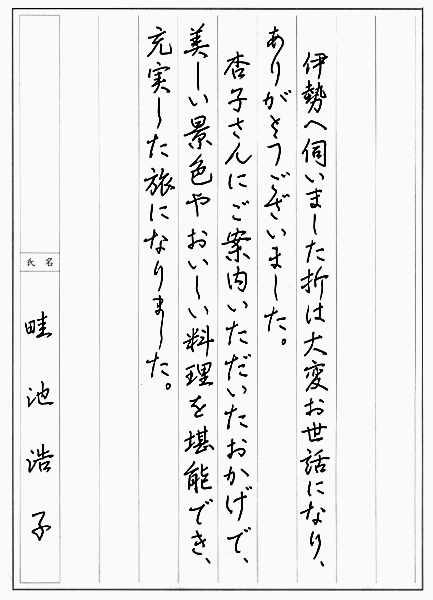 伊勢へ伺いました折は大変お世話になり、
ありがとうございました。
杏子さんにご案内いただいたおかげで、
美しい景色やおいしい料理を堪能でき、
充実した旅になりました。
氏名
畦池浩子